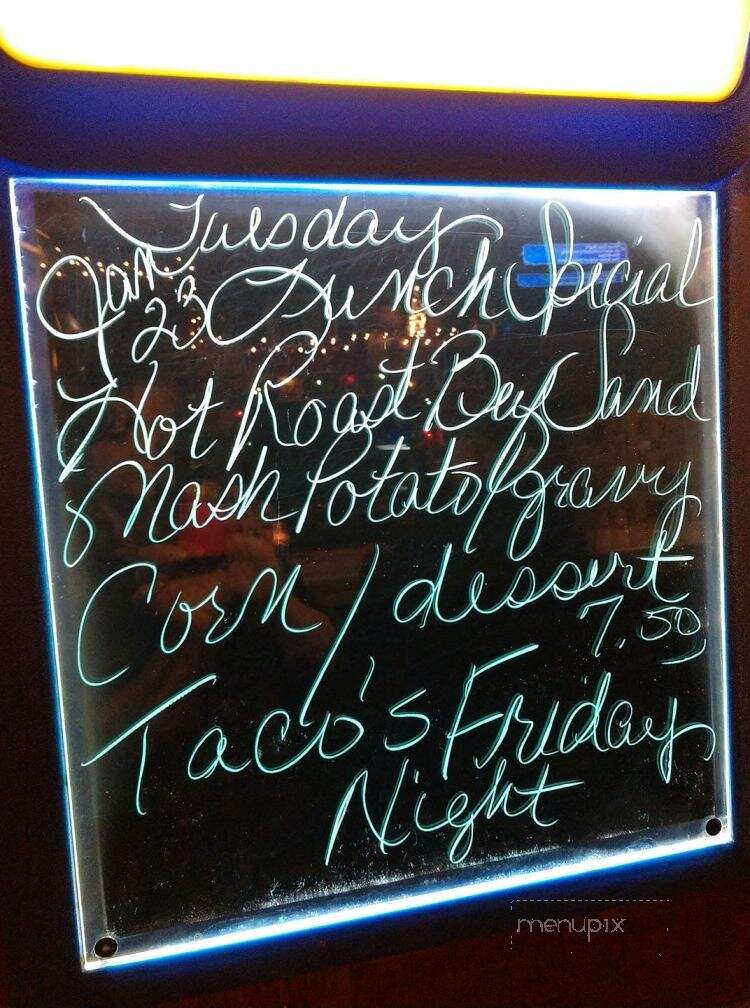 Tuesday
Jan 23 Lunch Special
Hot Roast Beef Sand
Mash Potato/gravy
Corn / dessert
7.50
Taco's Friday
Night
menupix